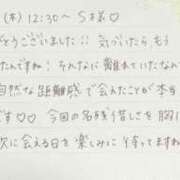 (木) 12:30〜 S様♡
とうございました!! 気づいたら、もう
たんですね! そんなに離れていたなんて
自然な距離感で会えたことが本当
です♡♡ 今回の名残り惜しさを胸に
次に会える日を楽しみに待ってますね